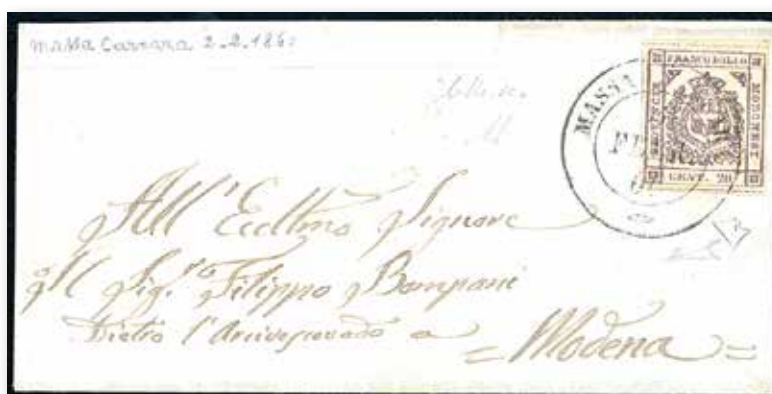 Massa Carrara 2.2.186
FRANCO BOLLO
PROVINCIE
MODONESI
CENT. 20
MASSA
FE
All' Ecclmo Signore
Il Sig.r Filippo Bompani
Dietro l'Arcivescovado a
= Modena =